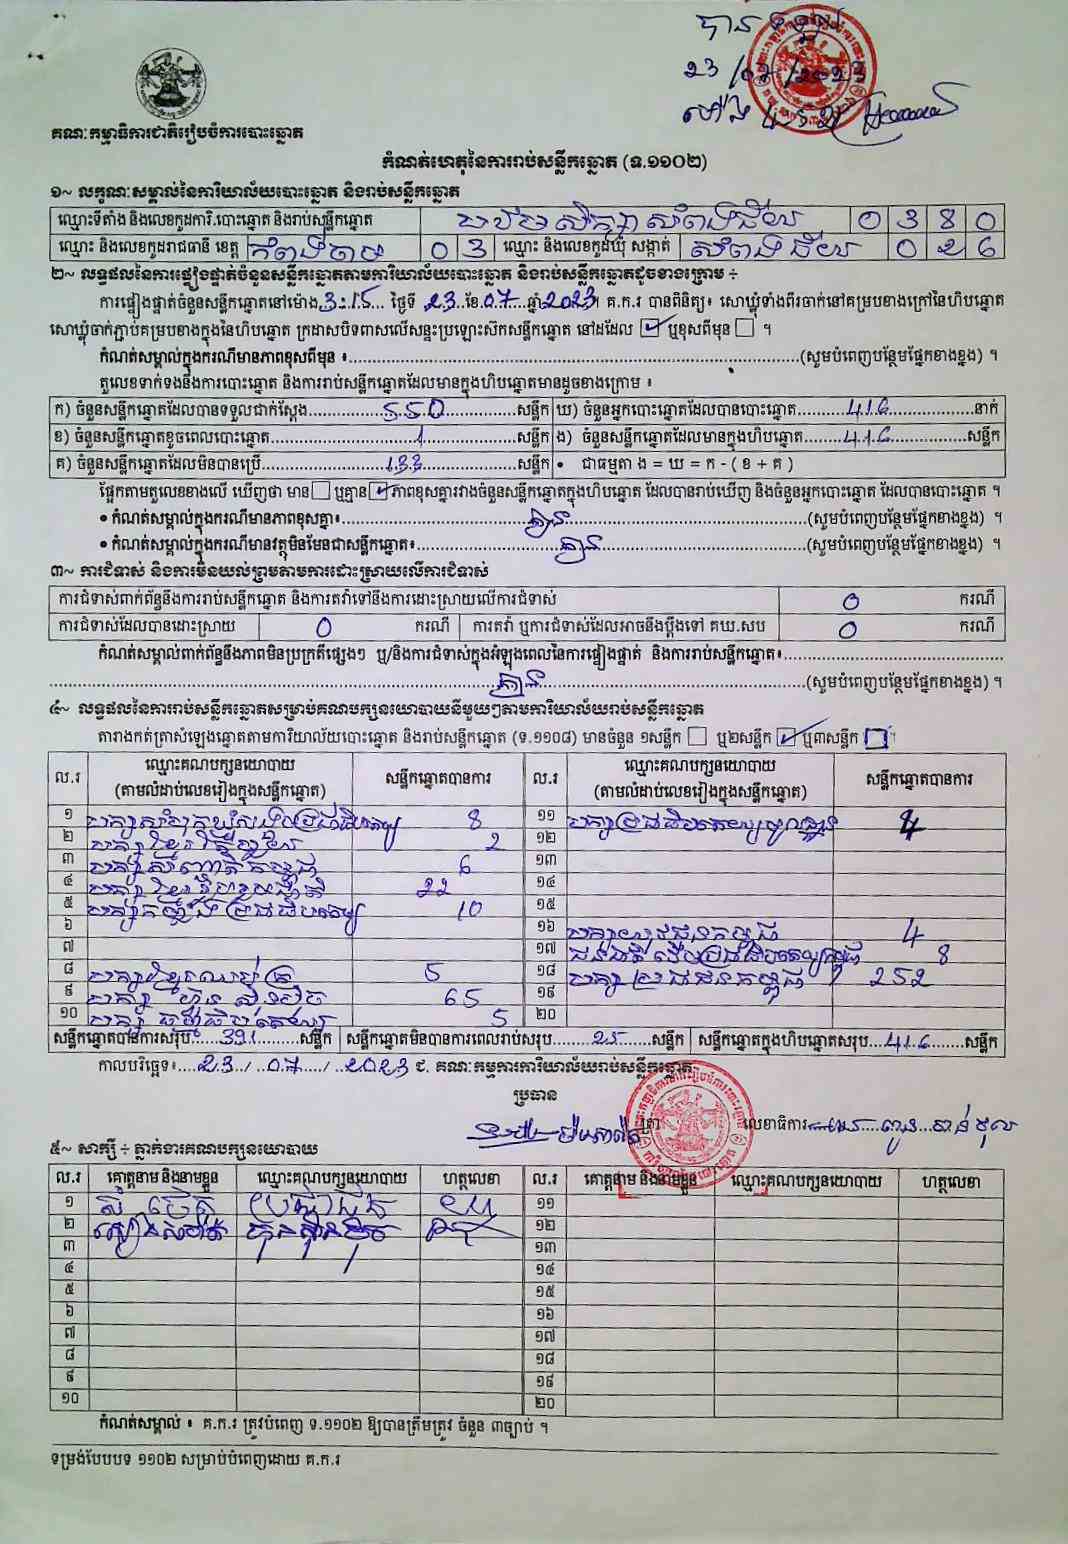 បានឃើញ
23/07/2023
គណៈកម្មាធិការជាតិរៀបចំការបោះឆ្នោត
កំណត់ហេតុនៃការរាប់សន្លឹកឆ្នោត (ទ.១១០២)
១~ លក្ខណៈសម្គាល់នៃការិយាល័យបោះឆ្នោត និងរាប់សន្លឹកឆ្នោត
ឈ្មោះទីតាំង និងលេខកូដការិ.បោះឆ្នោត និងរាប់សន្លឹកឆ្នោត បឋមសិក្សា សំពងជ័យ 0 3 8 0
ឈ្មោះ និងលេខកូដរាជធានី ខេត្ត កំពង់ចាម 0 3 ឈ្មោះ និងលេខកូដឃុំ សង្កាត់ សំពងជ័យ 0 2 6
២~ លទ្ធផលនៃការផ្ទៀងផ្ទាត់ចំនួនសន្លឹកឆ្នោតតាមការិយាល័យបោះឆ្នោត និងរាប់សន្លឹកឆ្នោតដូចខាងក្រោម ÷
ការផ្ទៀងផ្ទាត់ចំនួនសន្លឹកឆ្នោតនៅម៉ោង 3:15 ថ្ងៃទី 23 ខែ 07 ឆ្នាំ 2023។ គ.ក.រ បានពិនិត្យ៖ សោឃ្លុំទាំងពីរចាក់នៅគម្របខាងក្រៅនៃហិបឆ្នោត
សោឃ្លុំចាក់ភ្ជាប់គម្របខាងក្នុងនៃហិបឆ្នោត ក្រដាសបិទពាសលើសន្ទះប្រឡោះស៊កសន្លឹកឆ្នោត នៅដដែល ☑ ឬខុសពីមុន ☐ ។
កំណត់សម្គាល់ក្នុងករណីមានភាពខុសពីមុន ៖ (សូមបំពេញបន្ថែមផ្នែកខាងខ្នង) ។
តួលេខទាក់ទងនឹងការបោះឆ្នោត និងការរាប់សន្លឹកឆ្នោតដែលមានក្នុងហិបឆ្នោតមានដូចខាងក្រោម ៖
ក) ចំនួនសន្លឹកឆ្នោតដែលបានទទួលជាក់ស្តែង 550 សន្លឹក ឃ) ចំនួនអ្នកបោះឆ្នោតដែលបានបោះឆ្នោត 416 នាក់
ខ) ចំនួនសន្លឹកឆ្នោតខូចពេលបោះឆ្នោត 1 សន្លឹក ង) ចំនួនសន្លឹកឆ្នោតដែលមានក្នុងហិបឆ្នោត 416 សន្លឹក
គ) ចំនួនសន្លឹកឆ្នោតដែលមិនបានប្រើ 133 សន្លឹក • ជាធម្មតា ង = ឃ = ក - ( ខ + គ )
ផ្អែកតាមតួលេខខាងលើ ឃើញថា មាន ☐ ឬគ្មាន ☑ ភាពខុសគ្នារវាងចំនួនសន្លឹកឆ្នោតក្នុងហិបឆ្នោត ដែលបានរាប់ឃើញ និងចំនួនអ្នកបោះឆ្នោត ដែលបានបោះឆ្នោត ។
• កំណត់សម្គាល់ក្នុងករណីមានភាពខុសគ្នា៖ គ្មាន (សូមបំពេញបន្ថែមផ្នែកខាងខ្នង) ។
• កំណត់សម្គាល់ក្នុងករណីមានវត្ថុមិនមែនជាសន្លឹកឆ្នោត៖ គ្មាន (សូមបំពេញបន្ថែមផ្នែកខាងខ្នង) ។
៣~ ការជំទាស់ និងការមិនយល់ព្រមតាមការដោះស្រាយលើការជំទាស់
ការជំទាស់ពាក់ព័ន្ធនឹងការរាប់សន្លឹកឆ្នោត និងការតវ៉ាទៅនឹងការដោះស្រាយលើការជំទាស់ 0 ករណី
ការជំទាស់ដែលបានដោះស្រាយ 0 ករណី ការតវ៉ា ឬការជំទាស់ដែលអាចនឹងប្តឹងទៅ គឃ.សប 0 ករណី
កំណត់សម្គាល់ពាក់ព័ន្ធនឹងភាពមិនប្រក្រតីផ្សេងៗ ឬ/និងការជំទាស់ក្នុងអំឡុងពេលនៃការផ្ទៀងផ្ទាត់ និងការរាប់សន្លឹកឆ្នោត៖
គ្មាន (សូមបំពេញបន្ថែមផ្នែកខាងខ្នង) ។
៤~ លទ្ធផលនៃការរាប់សន្លឹកឆ្នោតសម្រាប់គណបក្សនយោបាយនីមួយៗតាមការិយាល័យរាប់សន្លឹកឆ្នោត
តារាងកត់ត្រាសំឡេងឆ្នោតតាមការិយាល័យបោះឆ្នោត និងរាប់សន្លឹកឆ្នោត (ទ.១១០៨) មានចំនួន ១សន្លឹក ☐ ឬ២សន្លឹក ☑ ឬ៣សន្លឹក ☐ ។
ល.រ ឈ្មោះគណបក្សនយោបាយ (តាមលំដាប់លេខរៀងក្នុងសន្លឹកឆ្នោត) សន្លឹកឆ្នោតបានការ ល.រ ឈ្មោះគណបក្សនយោបាយ (តាមលំដាប់លេខរៀងក្នុងសន្លឹកឆ្នោត) សន្លឹកឆ្នោតបានការ
១ បក្សសំបុកឃ្មុំសង្គមប្រជាធិបតេយ្យ 8 ១១ បក្សប្រជាធិបតេយ្យមូលដ្ឋាន 4
២ 2 ១២
៣ បក្សសញ្ជាតិកម្ពុជា 6 ១៣
៤ បក្សខ្មែររួបរួមជាតិ 22 ១៤
៥ បក្សកម្លាំងប្រជាធិបតេយ្យ 10 ១៥
៦ ១៦ បក្សយុវជនកម្ពុជា 4
៧ ១៧ 8
៨ បក្សខ្មែរឈប់ក្រ 5 ១៨ បក្សប្រជាជនកម្ពុជា 252
៩ បក្ស ហ៊្វុនស៊ិនប៉ិច 65 ១៩
១០ បក្ស ធម្មាធិបតេយ្យ 5 ២០
សន្លឹកឆ្នោតបានការសរុប 391 សន្លឹក សន្លឹកឆ្នោតមិនបានការពេលរាប់សរុប 25 សន្លឹក សន្លឹកឆ្នោតក្នុងហិបឆ្នោតសរុប 416 សន្លឹក
កាលបរិច្ឆេទ៖ 23 / 07 / 2023 ជ. គណៈកម្មការការិយាល័យរាប់សន្លឹកឆ្នោត
ប្រធាន
លេខាធិការ
៥~ សាក្សី ÷ ភ្នាក់ងារគណបក្សនយោបាយ
ល.រ គោត្តនាម និងនាមខ្លួន ឈ្មោះគណបក្សនយោបាយ ហត្ថលេខា ល.រ គោត្តនាម និងនាមខ្លួន ឈ្មោះគណបក្សនយោបាយ ហត្ថលេខា
១ ១១
២ ហ៊្វុនស៊ិនប៉ិច ១២
៣ ១៣
៤ ១៤
៥ ១៥
៦ ១៦
៧ ១៧
៨ ១៨
៩ ១៩
១០ ២០
កំណត់សម្គាល់ ៖ គ.ក.រ ត្រូវបំពេញ ទ.១១០២ ឱ្យបានត្រឹមត្រូវ ចំនួន ៣ច្បាប់ ។
ទម្រង់បែបបទ ១១០២ សម្រាប់បំពេញដោយ គ.ក.រ